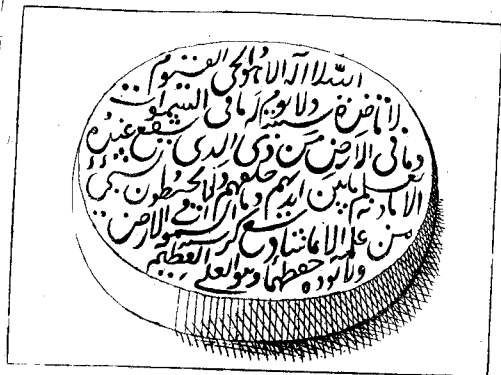 الله لا اله الا هو الحي القيوم
لا تاخذه سنة ولا نوم له ما في السموات
وما في الارض من ذي الذي يشفع عنده
الا باذنه يعلم ما بين ايديهم وما خلفهم ولا يحيطون بشيئ
من علمه الا بما شاء وسع كرسيه السموات والارض
ولا يوده حفظهما وهو العلي العظيم